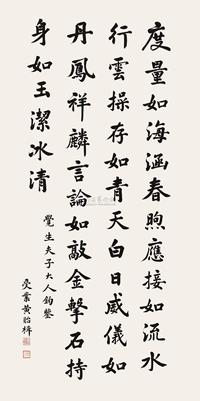 度量如海涵春煦應接如流水
行雲操存如青天白日威儀如
丹鳳祥麟言論如敲金擊石持
身如玉潔冰清
覺生夫子大人鈞鑒
受業黃貽楫